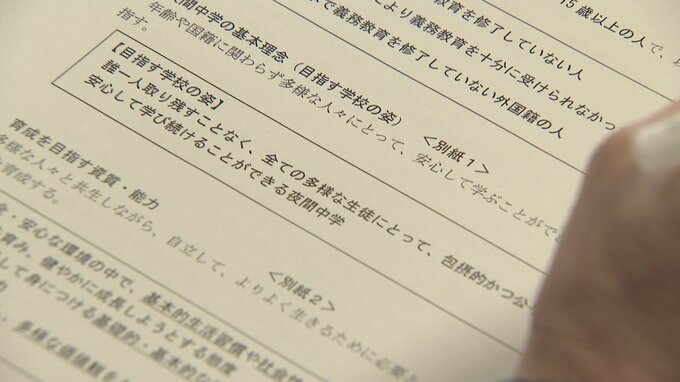 15歳以上の人で、
教育を修了していない人
より義務教育を十分に受けられなかっ
で義務教育を修了していない外国籍の人
夜間中学の基本理念（目指す学校の姿） <別紙１>
年齢や国籍に関わらず多様な人々にとって、安心して学ぶことができ
指す。
【目指す学校の姿】
誰一人取り残すことなく、全ての多様な生徒にとって、包摂的かつ公
安心して学び続けることができる夜間中学
育成を目指す資質・能力 <別紙２>
多様な人々と共生しながら、自立して、よりよく生きるために必要と
育成する。
・安心な環境の中で、基本的生活習慣や社会性
育み、健やかに成長しようとする態度
して身につける基礎的・基本的な
多様な価値観を